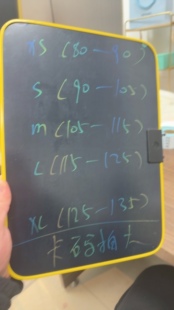 XS (80-90)
S (90-105)
m (105-115)
L (115-125)
XL (125-135)
卡码拍大